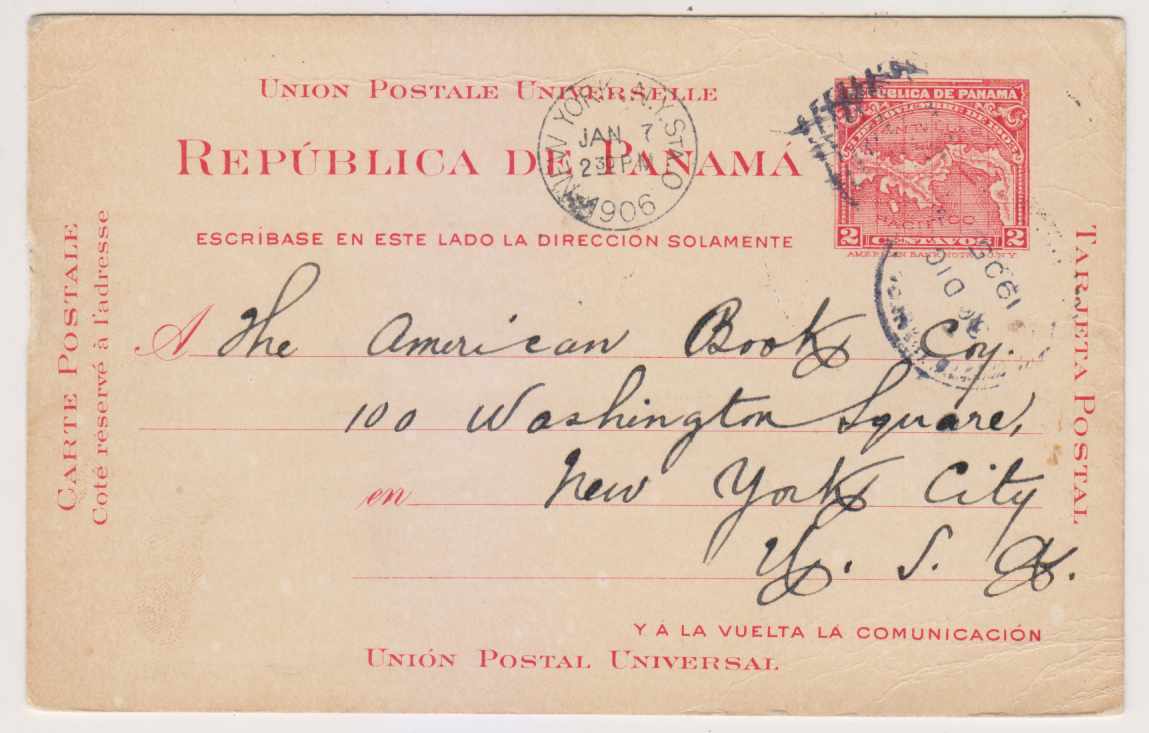 UNION POSTALE UNIVERSELLE
REPÚBLICA DE PANAMÁ
ESCRÍBASE EN ESTE LADO LA DIRECCION SOLAMENTE
NEW YORK, N.Y. STA. O
JAN 7
2 30 PM
1906
REPÚBLICA DE PANAMÁ
3 DE NOVIEMBRE DE 1903
2 CENTAVOS 2
AMERICAN BANK NOTE CO. N.Y.
DIC
CARTE POSTALE
Coté réservé à l'adresse
TARJETA POSTAL
A The American Book Coy.
100 Washington Square,
en New York City
U. S. A.
Y Á LA VUELTA LA COMUNICACIÓN
UNIÓN POSTAL UNIVERSAL